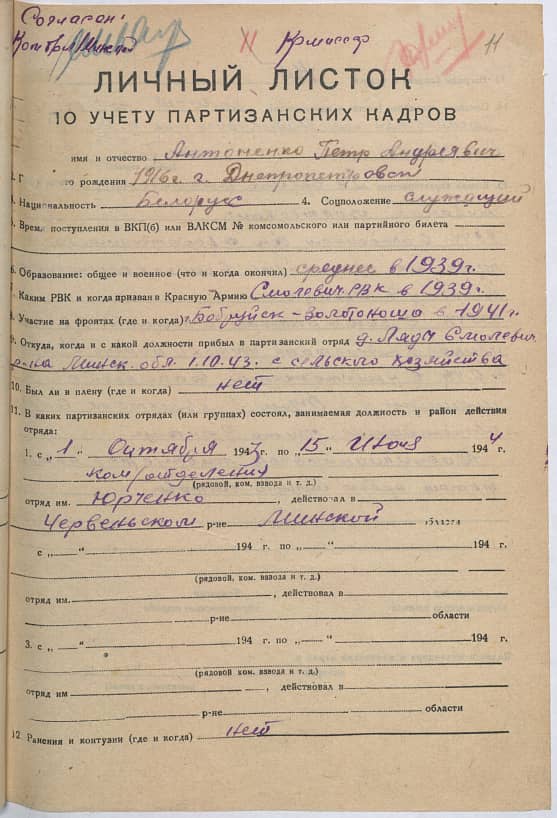 Согласен:
Комиссар
11
ЛИЧНЫЙ ЛИСТОК
ПО УЧЕТУ ПАРТИЗАНСКИХ КАДРОВ
имя и отчество Антоненко Петр Андреевич
2. Г то рождения 1916 г. г. Днепропетровск
3. Национальность Белорусс 4. Соцположение служащий
5. Время поступления в ВКП(б) или ВЛКСМ № комсомольского или партийного билета
6. Образование: общее и военное (что и когда окончил) среднее в 1939 г.
7. Каким РВК и когда призван в Красную Армию Смолевич. РВК в 1939 г.
8. Участие на фронтах (где и когда) г. Бобруйск – Золотоноша в 1941 г.
9. Откуда, когда и с какой должности прибыл в партизанский отряд д. Ляды Смолевич.
р-на Минск. обл. 1.10.43. с сельского хозяйства
10. Был ли в плену (где и когда) нет
11. В каких партизанских отрядах (или группах) состоял, занимаемая должность и район действия
отряда:
1. с „1“ Октября 1943 г. по „15“ Июля 1944
ком/отделения
(рядовой, ком. взвода и т. д.)
отряд им. Юрченко, действовал в
Червеньском р-не Минской области
с „ “ 194 г. по „ “ 194 г.
(рядовой, ком. взвода и т. д.)
отряд им. , действовал в
р-не области
3. с „ “ 194 г. по „ “ 194 г.
(рядовой, ком. взвода и т. д.)
отряд им , действовал в
р-не области
12. Ранения и контузии (где и когда) нет